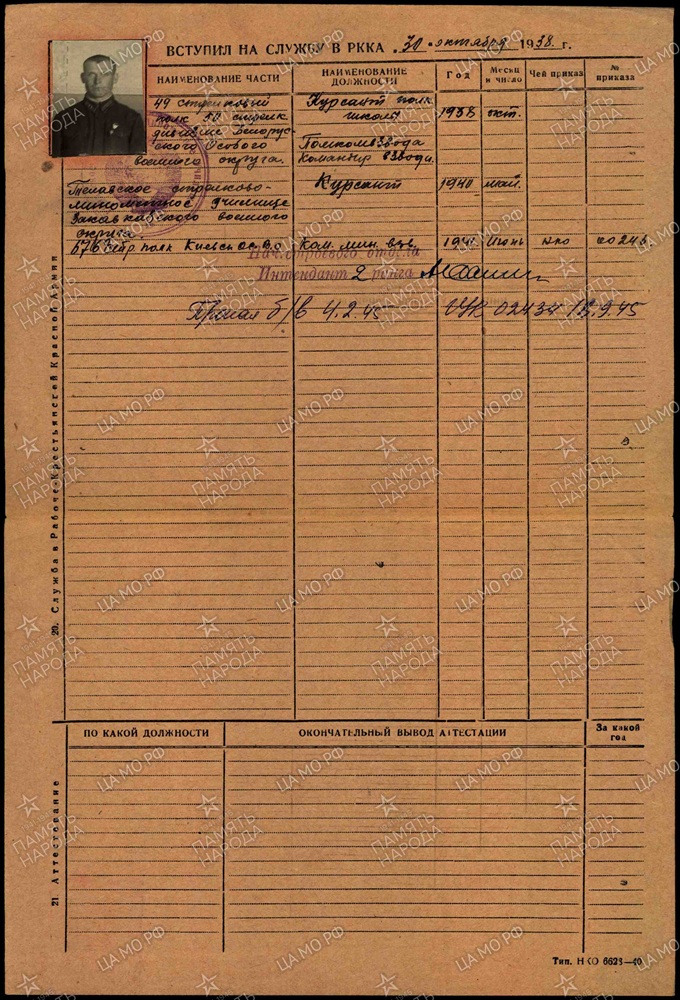 ВСТУПИЛ НА СЛУЖБУ В РККА „30“ октября 1938 г.
НАИМЕНОВАНИЕ ЧАСТИ
НАИМЕНОВАНИЕ ДОЛЖНОСТИ
Год
Месяц и число
Чей приказ
№ приказа
49 стрелковый Курсант полк.
полк 50 стрелк. школы 1938 окт.
дивизии Белорус
ского Особого Помкомвзвода
военного округа. Командир взвода.
Телавское стрелково- Курсант 1940 май.
минометное училище
Закавказского военного
округа.
576 стр. полк Киевск. о.в.о Ком. мин. взв. 1941 Июнь НКО 00246.
Нач. строевого отдела
Интендант 2 ранга
Пропал б/в 4.2.45 ГУК 02434
20. Служба в Рабоче-Крестьянской Красной Армии
ПО КАКОЙ ДОЛЖНОСТИ
ОКОНЧАТЕЛЬНЫЙ ВЫВОД АТТЕСТАЦИИ
За какой год
21. Аттестование
Тип. НКО 6623—40
ЦА МО РФ
ПАМЯТЬ НАРОДА